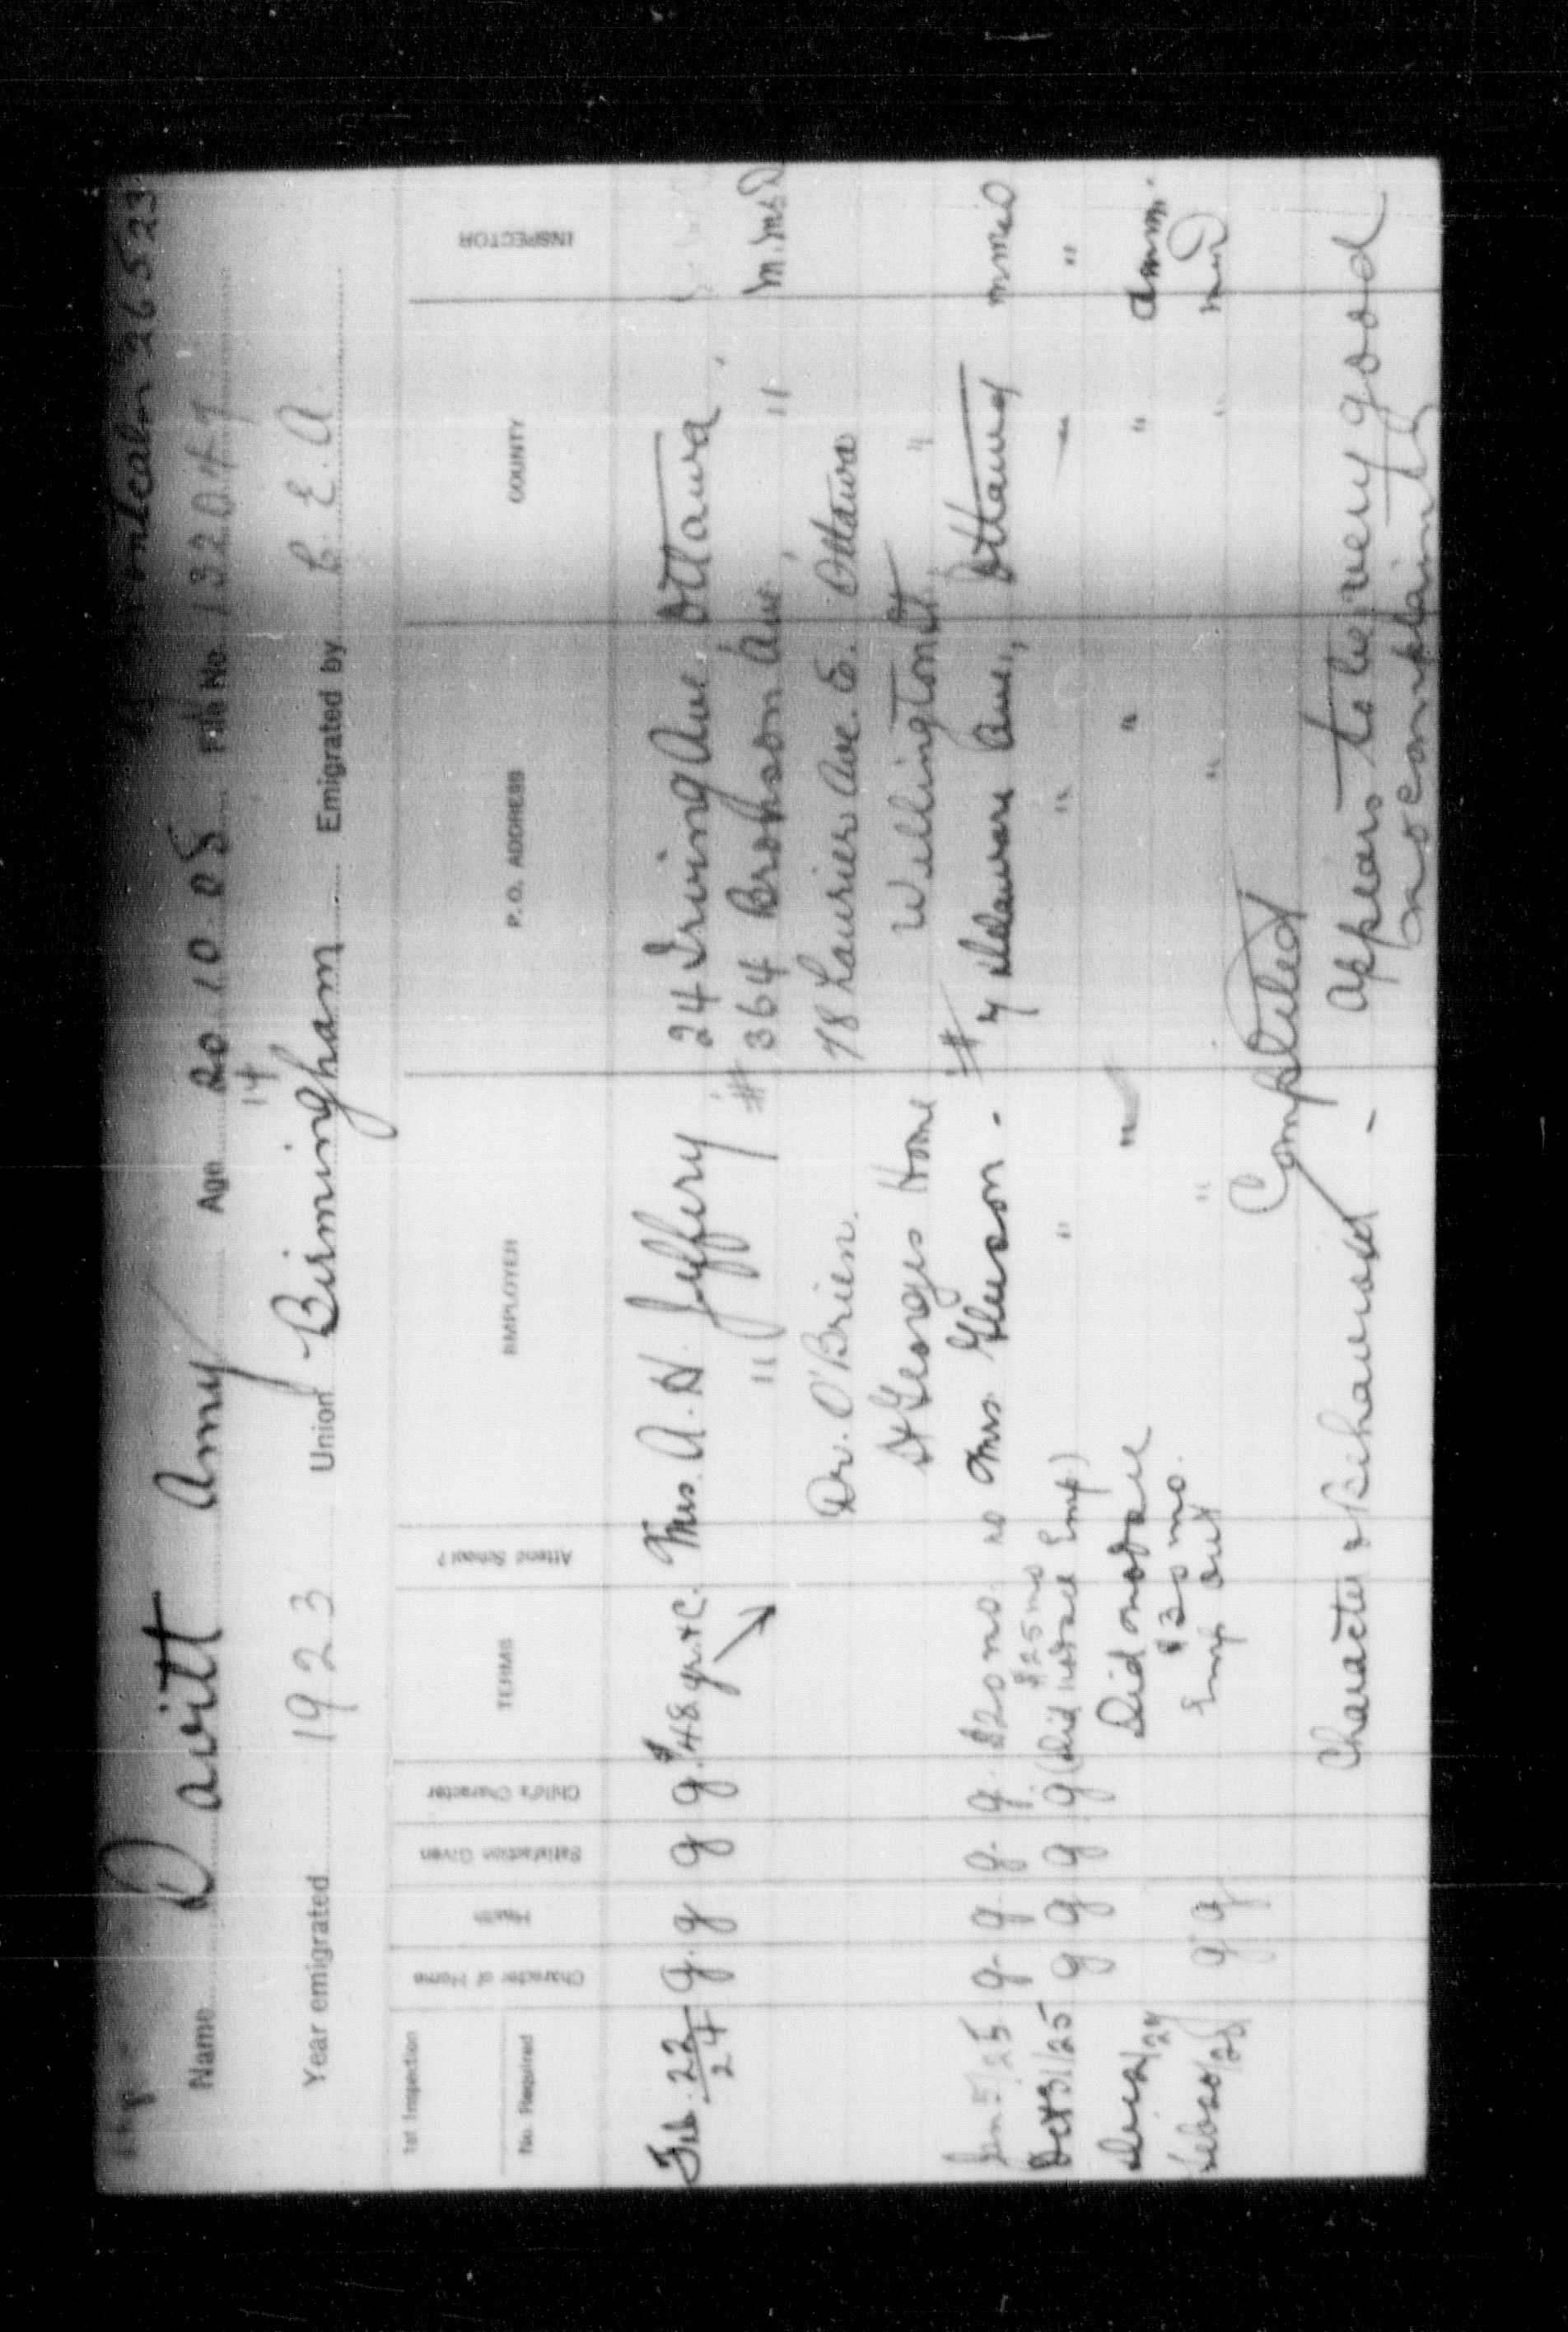 26 5 23
Name Davitt Amy Age 20.10.08 File No. 132047
14
Year emigrated 1923 Union Birmingham Emigrated by C. E. A
1st Inspection
No. Required
Character of Home
Health
Satisfaction Given
Child's Character
TERMS
Attend School?
EMPLOYER
P. O. ADDRESS
COUNTY
INSPECTOR
Feb. 22/24 g. g g g. $48 yr. + C. Mrs. A. H. Jeffery 24 Irving Ave. Ottawa
" # 364 Bronson Ave. "
Dr. O'Brien. 78 Laurier Ave. E. Ottawa
St Georges Home Wellington St. "
Jan 5/25 g. g g. g. $20 mo. no Mrs. Gleeson. # 7 Delaware Ave., Ottawa
$25 mo
Oct 31/25 g g g g (Did not see Emp) " " "
Did not see " " "
$30 mo.
g g Emp out " " "
Completed
Character & Behaviour - Appears to be very good
no complaints